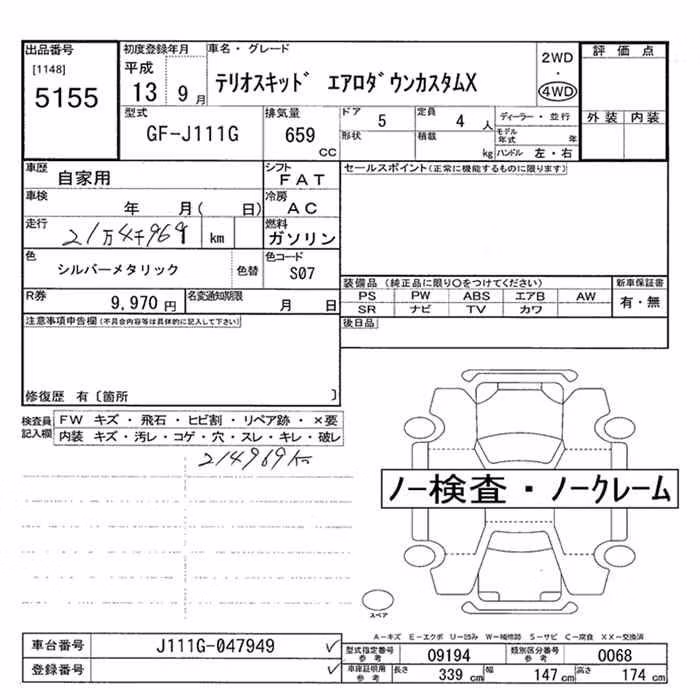 出品番号
[1148]
5155
初度登録年月
平成
13 9 月
車名・グレード
テリオスキッド エアロダウンカスタムX
2WD
・
4WD
評価点
外装 内装
型式
GF-J111G
排気量
659
CC
ドア
5
定員
4 人
形状
積載
kg
ディーラー・並行
モデル年式 年
ハンドル 左・右
車歴
自家用
シフト
FAT
車検
年 月( 日)
冷房
AC
走行
21万4千969 km
燃料
ガソリン
色
シルバーメタリック
色替
色コード
S07
R券
9,970 円
名変通知期限
月 日
セールスポイント(正常に機能するものに限ります)
装備品 (純正品に限り○をつけてください)
PS PW ABS エアB AW
SR ナビ TV カワ
新車保証書
有・無
後日品
注意事項申告欄(不具合内容等は具体的に記入して下さい)
修復歴 有〔箇所 〕
検査員記入欄
FW キズ・飛石・ヒビ割・リペア跡・×要
内装 キズ・汚レ・コゲ・穴・スレ・キレ・破レ
214969km
ノー検査・ノークレーム
スペア
A-キズ E-エクボ U-凹み W-補修跡 S-サビ C-腐食 XX-交換済
車台番号
J111G-047949 ✓
登録番号
✓
型式指定番号 参考
09194
類別区分番号 参考
0068
車庫証明用 参考
長さ 339 cm
幅 147 cm
高さ 174 cm